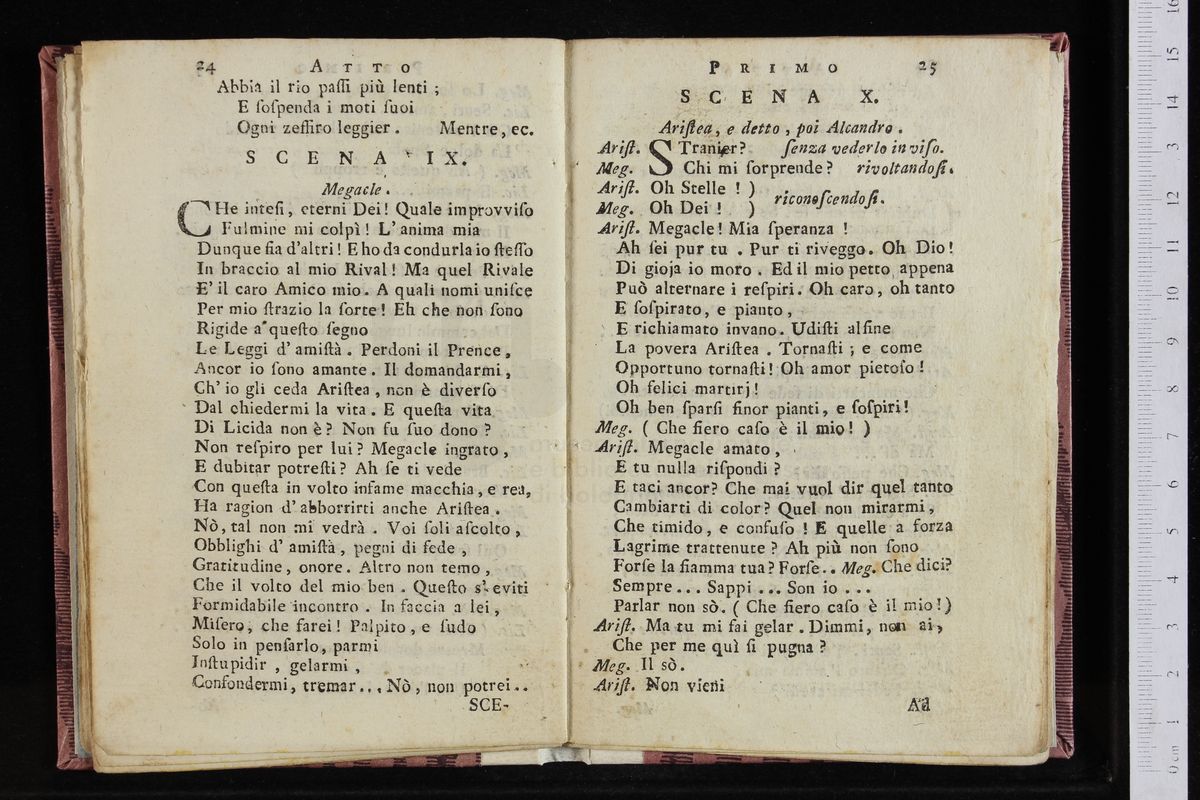 24 ATTO
Abbia il rio paſſi più lenti ;
E ſoſpenda i moti ſuoi
Ogni zeffiro leggier . Mentre, ec.
SCENA IX.
Megacle .
CHe inteſi, eterni Dei! Quale improvviſo
Fulmine mi colpì! L' anima mia
Dunque fia d'altri! E ho da condurla io ſteſſo
In braccio al mio Rival! Ma quel Rivale
E' il caro Amico mio. A quali nomi uniſce
Per mio ſtrazio la ſorte! Eh che non ſono
Rigide a queſto ſegno
Le Leggi d' amiſtà. Perdoni il Prence,
Ancor io ſono amante. Il domandarmi,
Ch' io gli ceda Ariſtea, non è diverſo
Dal chiedermi la vita. E queſta vita
Di Licida non è? Non fu ſuo dono?
Non reſpiro per lui? Megacle ingrato,
E dubitar potreſti? Ah ſe ti vede
Con queſta in volto infame macchia, e rea,
Ha ragion d'abborrirti anche Ariſtea.
Nò, tal non mi vedrà. Voi ſoli aſcolto,
Obblighi d' amiſtà, pegni di fede,
Gratitudine, onore. Altro non temo,
Che il volto del mio ben. Queſto s' eviti
Formidabile incontro. In faccia a lei,
Miſero, che farei! Palpito, e ſudo
Solo in penſarlo, parmi
Inſtupidir, gelarmi,
Confondermi, tremar... Nò, non potrei..
SCE-
PRIMO 25
SCENA X.
Ariſtea, e detto, poi Alcandro.
Ariſt. STranier? ſenza vederlo in viſo.
Meg. Chi mi ſorprende? rivoltandoſi.
Ariſt. Oh Stelle! )
Meg. Oh Dei! ) riconoſcendoſi.
Ariſt. Megacle! Mia ſperanza!
Ah ſei pur tu. Pur ti riveggo. Oh Dio!
Di gioja io moro. Ed il mio petto appena
Può alternare i reſpiri. Oh caro, oh tanto
E ſoſpirato, e pianto,
E richiamato invano. Udiſti alfine
La povera Ariſtea. Tornaſti; e come
Opportuno tornaſti! Oh amor pietoſo!
Oh felici martirj!
Oh ben ſparſi finor pianti, e ſoſpiri!
Meg. ( Che fiero caſo è il mio! )
Ariſt. Megacle amato,
E tu nulla riſpondi?
E taci ancor? Che mai vuol dir quel tanto
Cambiarti di color? Quel non mirarmi,
Che timido, e confuſo! E quelle a forza
Lagrime trattenute? Ah più non ſono
Forſe la fiamma tua? Forſe.. Meg. Che dici?
Sempre... Sappi... Son io...
Parlar non sò. ( Che fiero caſo è il mio!)
Ariſt. Ma tu mi fai gelar. Dimmi, non ai,
Che per me quì ſi pugna?
Meg. Il sò.
Ariſt. Non vieni
Ad